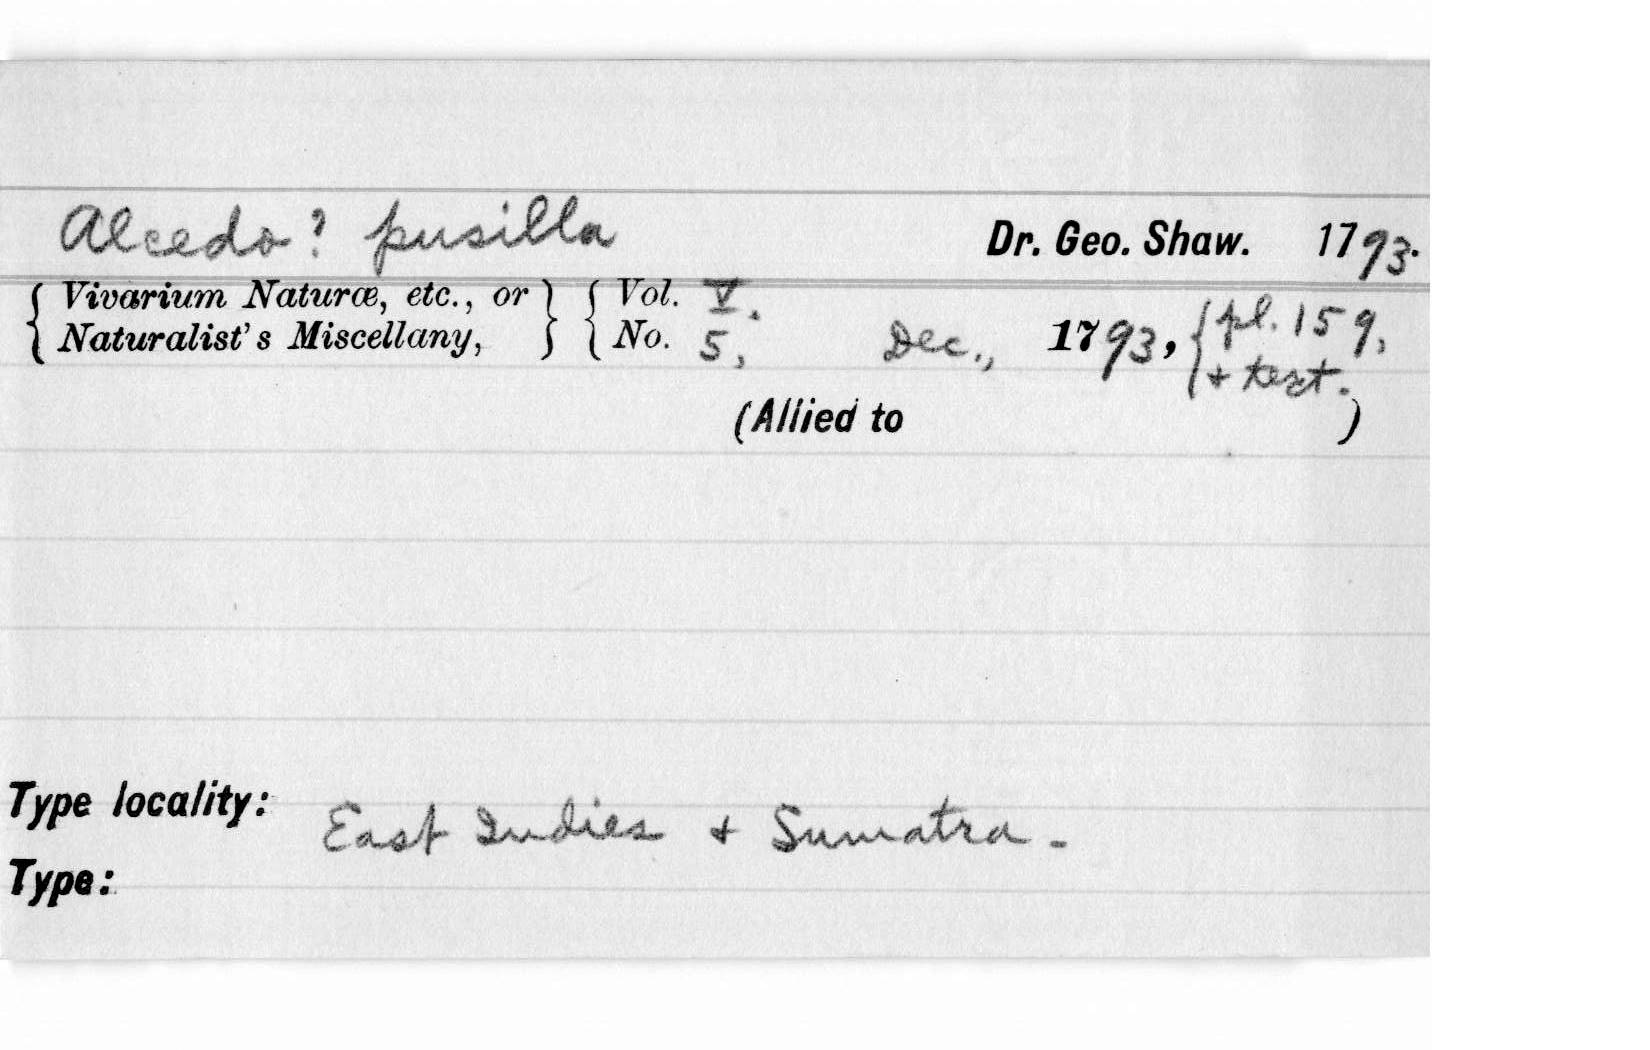 Alcedo? pusilla Dr. Geo. Shaw. 1793.
{ Vivarium Naturæ, etc., or } { Vol. V.
{ Naturalist's Miscellany, } { No. 5, Dec., 1793, { pl. 159,
+ text.
(Allied to )
Type locality: East Indies + Sumatra -
Type: